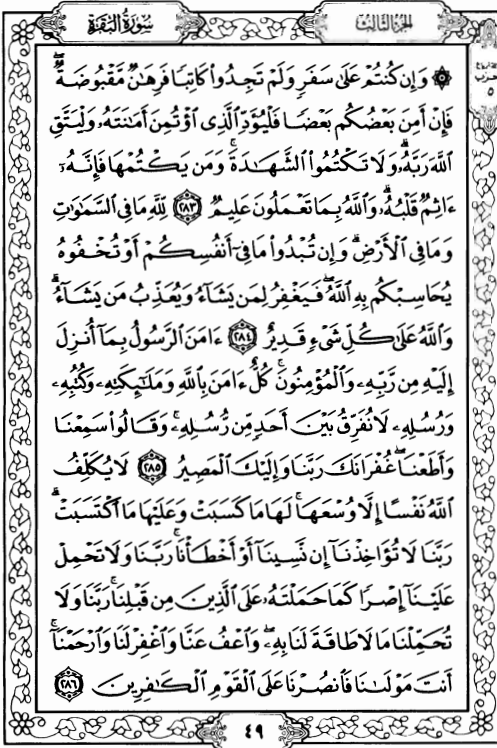 سُورَةُ البَقَرَةِ
الجُزْءُ الثَّالِث
۞ وَإِن كُنتُمْ عَلَىٰ سَفَرٍ وَلَمْ تَجِدُوا۟ كَاتِبًا فَرِهَٰنٌ مَّقْبُوضَةٌ ۖ
فَإِنْ أَمِنَ بَعْضُكُم بَعْضًا فَلْيُؤَدِّ ٱلَّذِى ٱؤْتُمِنَ أَمَٰنَتَهُۥ وَلْيَتَّقِ
ٱللَّهَ رَبَّهُۥ ۗ وَلَا تَكْتُمُوا۟ ٱلشَّهَٰدَةَ ۚ وَمَن يَكْتُمْهَا فَإِنَّهُۥٓ
ءَاثِمٌ قَلْبُهُۥ ۗ وَٱللَّهُ بِمَا تَعْمَلُونَ عَلِيمٌ ٢٨٣ لِّلَّهِ مَا فِى ٱلسَّمَٰوَٰتِ
وَمَا فِى ٱلْأَرْضِ ۗ وَإِن تُبْدُوا۟ مَا فِىٓ أَنفُسِكُمْ أَوْ تُخْفُوهُ
يُحَاسِبْكُم بِهِ ٱللَّهُ ۖ فَيَغْفِرُ لِمَن يَشَآءُ وَيُعَذِّبُ مَن يَشَآءُ ۗ
وَٱللَّهُ عَلَىٰ كُلِّ شَىْءٍ قَدِيرٌ ٢٨٤ ءَامَنَ ٱلرَّسُولُ بِمَآ أُنزِلَ
إِلَيْهِ مِن رَّبِّهِۦ وَٱلْمُؤْمِنُونَ ۚ كُلٌّ ءَامَنَ بِٱللَّهِ وَمَلَٰٓئِكَتِهِۦ وَكُتُبِهِۦ
وَرُسُلِهِۦ لَا نُفَرِّقُ بَيْنَ أَحَدٍ مِّن رُّسُلِهِۦ ۚ وَقَالُوا۟ سَمِعْنَا
وَأَطَعْنَا ۖ غُفْرَانَكَ رَبَّنَا وَإِلَيْكَ ٱلْمَصِيرُ ٢٨٥ لَا يُكَلِّفُ
ٱللَّهُ نَفْسًا إِلَّا وُسْعَهَا ۚ لَهَا مَا كَسَبَتْ وَعَلَيْهَا مَا ٱكْتَسَبَتْ ۗ
رَبَّنَا لَا تُؤَاخِذْنَآ إِن نَّسِينَآ أَوْ أَخْطَأْنَا ۚ رَبَّنَا وَلَا تَحْمِلْ
عَلَيْنَآ إِصْرًا كَمَا حَمَلْتَهُۥ عَلَى ٱلَّذِينَ مِن قَبْلِنَا ۚ رَبَّنَا وَلَا
تُحَمِّلْنَا مَا لَا طَاقَةَ لَنَا بِهِۦ ۖ وَٱعْفُ عَنَّا وَٱغْفِرْ لَنَا وَٱرْحَمْنَآ ۚ
أَنتَ مَوْلَىٰنَا فَٱنصُرْنَا عَلَى ٱلْقَوْمِ ٱلْكَٰفِرِينَ ٢٨٦
٤٩